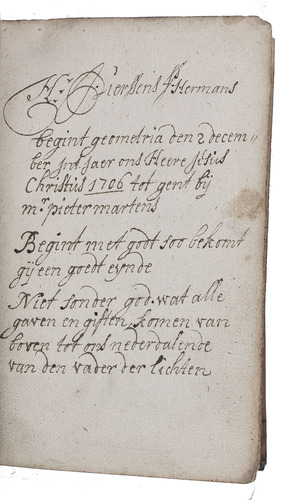 H. Dierkens fs Hermans
begint geometria den 2 decem=
ber int jaer ons Heere Jesus
Christus 1706 tot gent bij
mr pieter martens
Begint met godt soo bekomt
gij een goedt eynde
Niet sonder god wat alle
gaven en giften komen van
boven tot ons nederdalende
van den vader der lichten